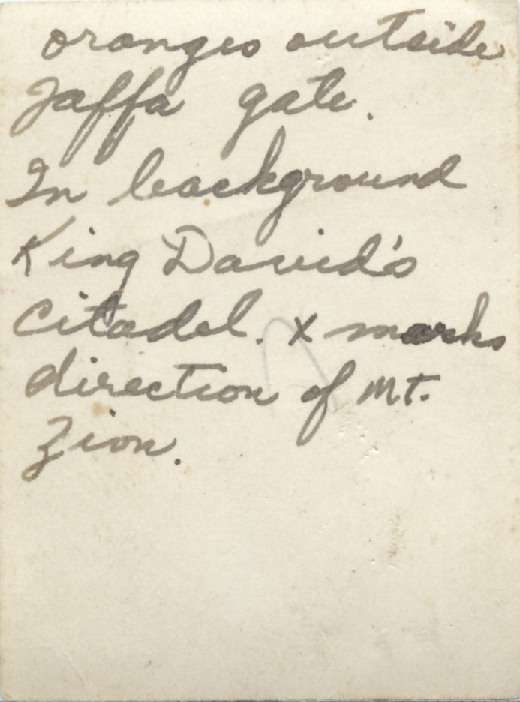 oranges outside
Jaffa gate.
In background
King David's
Citadel. X marks
direction of Mt.
Zion.